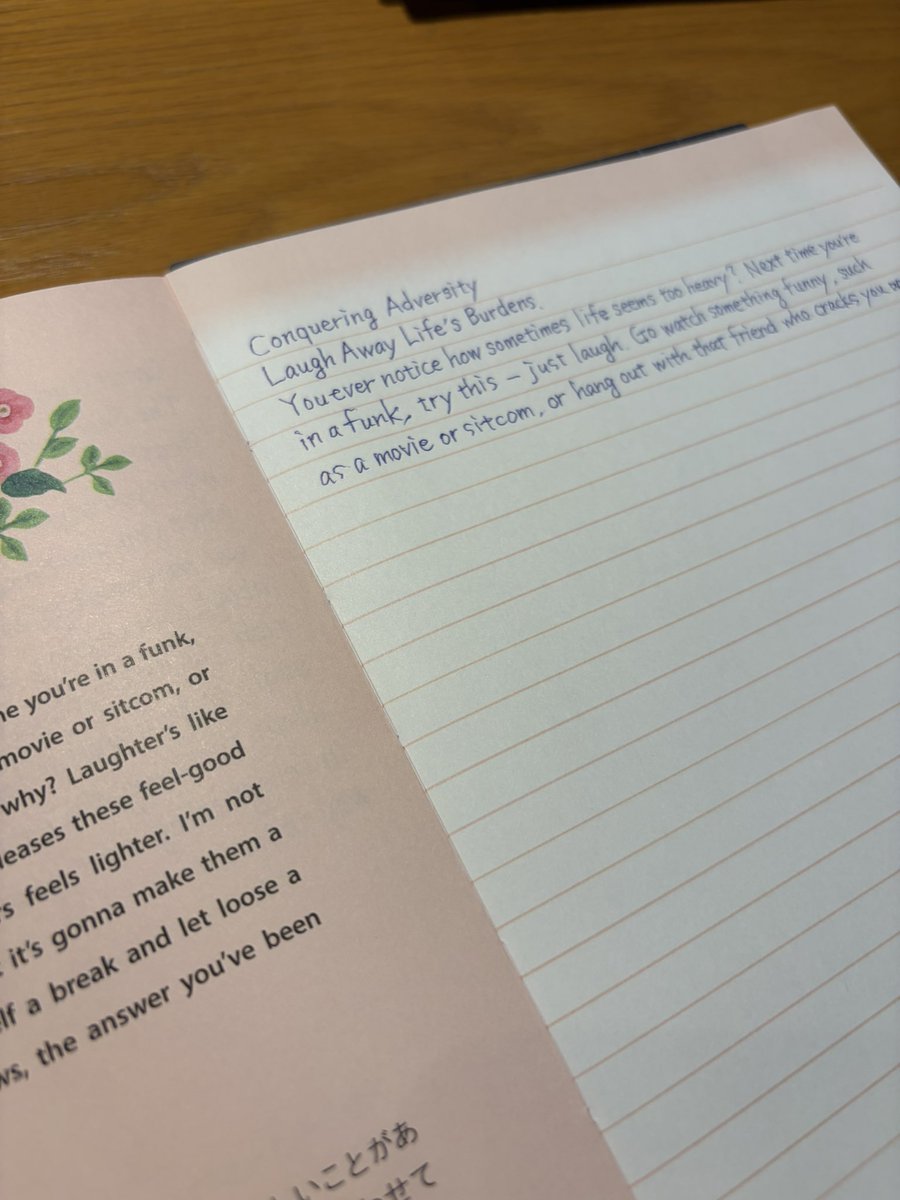 Conquering Adversity
Laugh Away Life's Burdens.
You ever notice how sometimes life seems too heavy? Next time you're
in a funk, try this – just laugh. Go watch something funny, such
as a movie or sitcom, or hang out with that friend who cracks you
you're in a funk,
movie or sitcom, or
why? Laughter's like
these feel-good
feels lighter. I'm not
it's gonna make them a
a break and let loose a
the answer you've been
いことがあ
せて